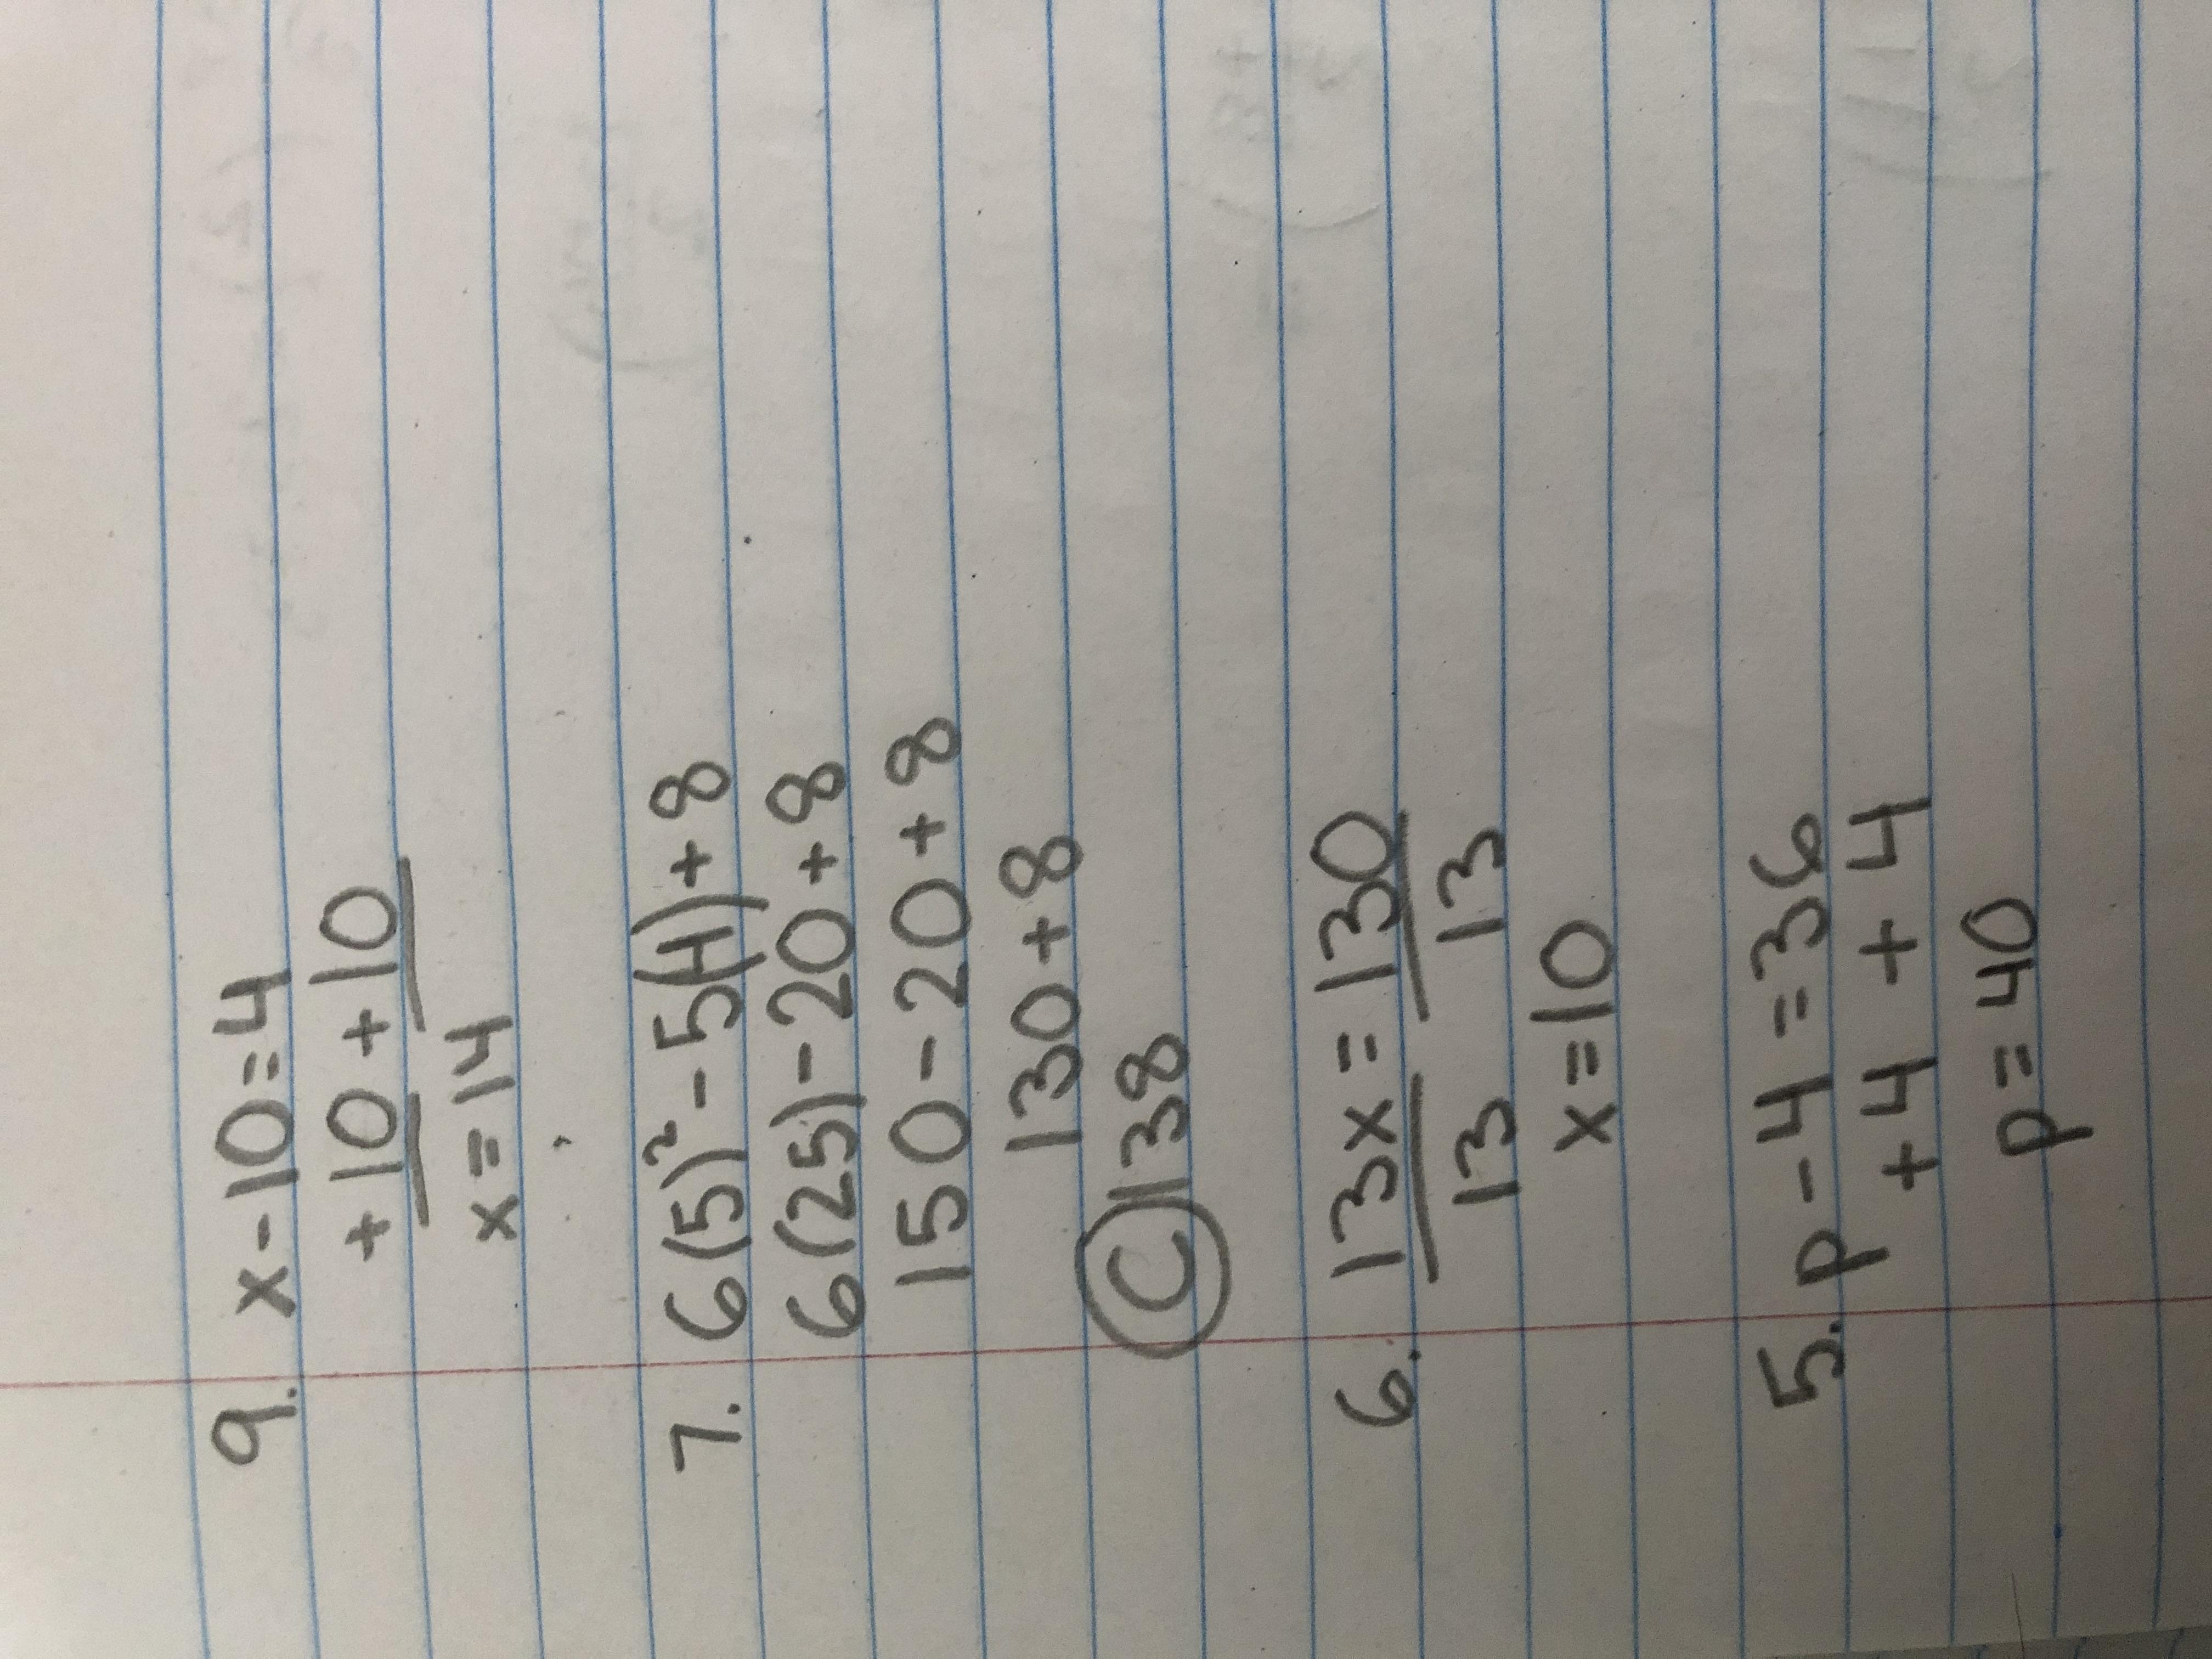 9. x-10=4
+10 +10
x=14
7. 6(5)²-5(4)+8
6(25)-20+8
150-20+8
130+8
C 138
6. 13x=130
13 13
x=10
5. p-4=36
+4 +4
p=40